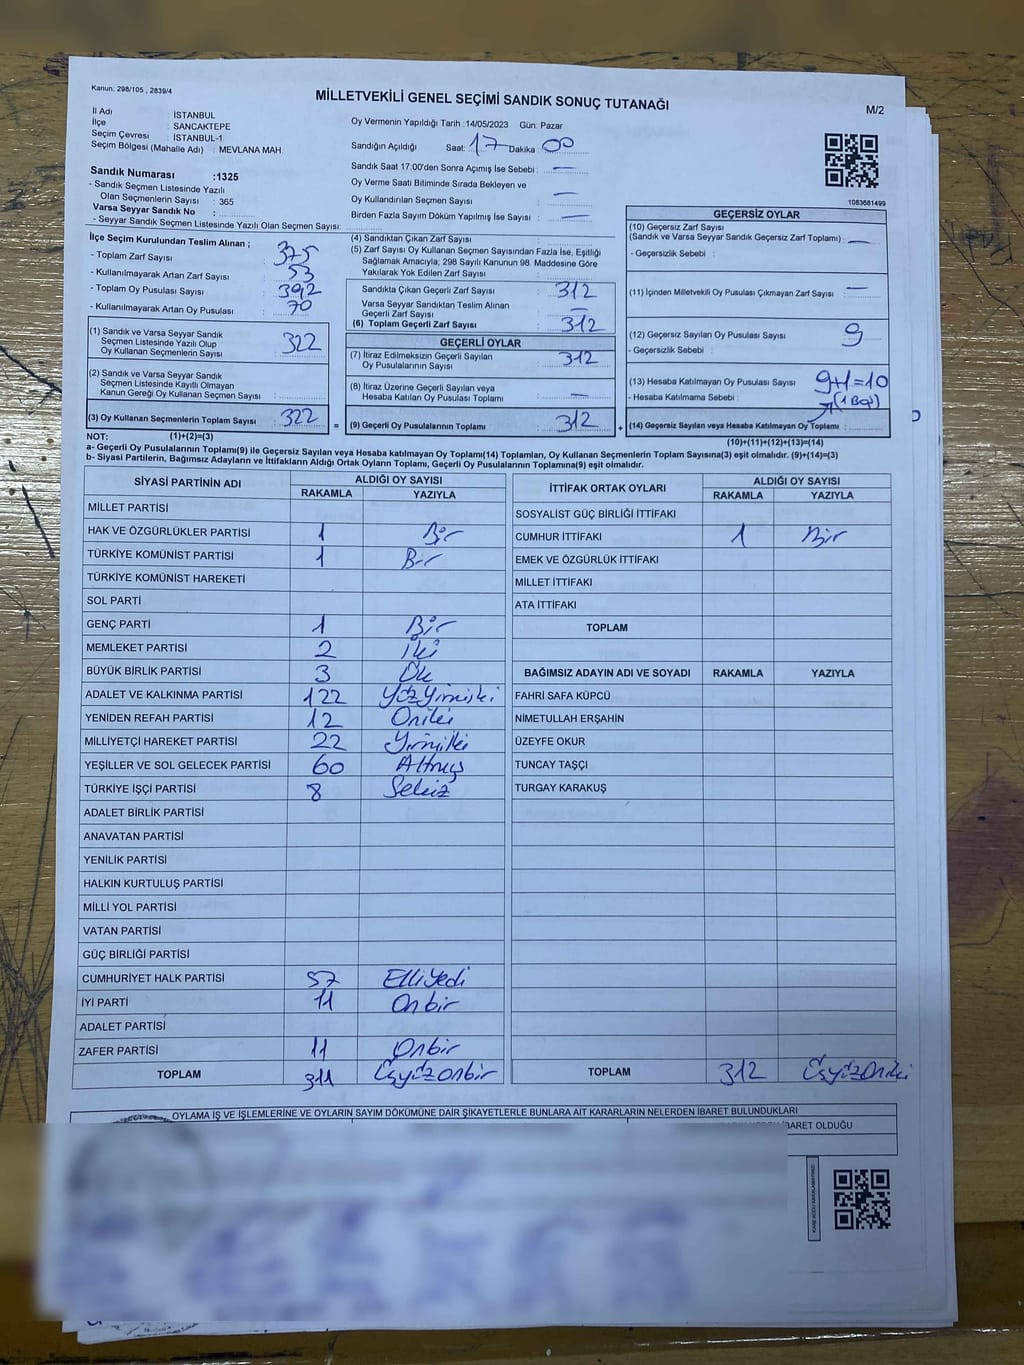 Kanun: 298/105 , 2839/4
MİLLETVEKİLİ GENEL SEÇİMİ SANDIK SONUÇ TUTANAĞI
M/2
İl Adı : İSTANBUL
İlçe : SANCAKTEPE
Seçim Çevresi : İSTANBUL-1
Seçim Bölgesi (Mahalle Adı) : MEVLANA MAH.
Oy Vermenin Yapıldığı Tarih :14/05/2023 Gün: Pazar
Sandığın Açıldığı Saat: 17 Dakika 00
Sandık Saat 17.00'den Sonra Açımış İse Sebebi : —
Oy Verme Saati Bitiminde Sırada Bekleyen ve
Oy Kullandırılan Seçmen Sayısı : —
Birden Fazla Sayım Döküm Yapılmış İse Sayısı : —
1083681499
Sandık Numarası :1325
- Sandık Seçmen Listesinde Yazılı
Olan Seçmenlerin Sayısı : 365
Varsa Seyyar Sandık No :
- Seyyar Sandık Seçmen Listesinde Yazılı Olan Seçmen Sayısı:
İlçe Seçim Kurulundan Teslim Alınan ;
- Toplam Zarf Sayısı : 375
- Kullanılmayarak Artan Zarf Sayısı : 53
- Toplam Oy Pusulası Sayısı : 392
- Kullanılmayarak Artan Oy Pusulası : 70
(1) Sandık ve Varsa Seyyar Sandık
Seçmen Listesinde Yazılı Olup
Oy Kullanan Seçmenlerin Sayısı : 322
(2) Sandık ve Varsa Seyyar Sandık
Seçmen Listesinde Kayıtlı Olmayan
Kanun Gereği Oy Kullanan Seçmen Sayısı :
(3) Oy Kullanan Seçmenlerin Toplam Sayısı : 322 =
(4) Sandıktan Çıkan Zarf Sayısı :
(5) Zarf Sayısı Oy Kullanan Seçmen Sayısından Fazla İse, Eşitliği
Sağlamak Amacıyla; 298 Sayılı Kanunun 98. Maddesine Göre
Yakılarak Yok Edilen Zarf Sayısı :
Sandıkta Çıkan Geçerli Zarf Sayısı : 312
Varsa Seyyar Sandıktan Teslim Alınan
Geçerli Zarf Sayısı : —
(6) Toplam Geçerli Zarf Sayısı : 312
GEÇERLİ OYLAR
(7) İtiraz Edilmeksizin Geçerli Sayılan
Oy Pusulalarının Sayısı : 312
(8) İtiraz Üzerine Geçerli Sayılan veya
Hesaba Katılan Oy Pusulası Toplamı : —
(9) Geçerli Oy Pusulalarının Toplamı : 312 +
GEÇERSİZ OYLAR
(10) Geçersiz Zarf Sayısı
(Sandık ve Varsa Seyyar Sandık Geçersiz Zarf Toplamı) : —
- Geçersizlik Sebebi :
(11) İçinden Milletvekili Oy Pusulası Çıkmayan Zarf Sayısı : —
(12) Geçersiz Sayılan Oy Pusulası Sayısı : 9
- Geçersizlik Sebebi :
(13) Hesaba Katılmayan Oy Pusulası Sayısı : 9+1=10
- Hesaba Katılmama Sebebi : (1 Boş)
(14) Geçersiz Sayılan veya Hesaba Katılmayan Oy Toplamı :
NOT: (1)+(2)=(3)
(10)+(11)+(12)+(13)=(14)
a- Geçerli Oy Pusulalarının Toplamı(9) ile Geçersiz Sayılan veya Hesaba katılmayan Oy Toplamı(14) Toplamları, Oy Kullanan Seçmenlerin Toplam Sayısına(3) eşit olmalıdır. (9)+(14)=(3)
b- Siyasi Partilerin, Bağımsız Adayların ve İttifakların Aldığı Ortak Oyların Toplamı, Geçerli Oy Pusulalarının Toplamına(9) eşit olmalıdır.
SİYASİ PARTİNİN ADI ALDIĞI OY SAYISI
RAKAMLA YAZIYLA
MİLLET PARTİSİ
HAK VE ÖZGÜRLÜKLER PARTİSİ 1 Bir
TÜRKİYE KOMÜNİST PARTİSİ 1 Bir
TÜRKİYE KOMÜNİST HAREKETİ
SOL PARTİ
GENÇ PARTİ 1 Bir
MEMLEKET PARTİSİ 2 İki
BÜYÜK BİRLİK PARTİSİ 3
ADALET VE KALKINMA PARTİSİ 122 Yüzyirmiiki
YENİDEN REFAH PARTİSİ 12 Oniki
MİLLİYETÇİ HAREKET PARTİSİ 22 Yirmiiki
YEŞİLLER VE SOL GELECEK PARTİSİ 60 Altmış
TÜRKİYE İŞÇİ PARTİSİ 8 Sekiz
ADALET BİRLİK PARTİSİ
ANAVATAN PARTİSİ
YENİLİK PARTİSİ
HALKIN KURTULUŞ PARTİSİ
MİLLİ YOL PARTİSİ
VATAN PARTİSİ
GÜÇ BİRLİĞİ PARTİSİ
CUMHURİYET HALK PARTİSİ 57 Elliyedi
İYİ PARTİ 11 Onbir
ADALET PARTİSİ
ZAFER PARTİSİ 11 Onbir
TOPLAM 311 Üçyüzonbir
İTTİFAK ORTAK OYLARI ALDIĞI OY SAYISI
RAKAMLA YAZIYLA
SOSYALİST GÜÇ BİRLİĞİ İTTİFAKI
CUMHUR İTTİFAKI 1 Bir
EMEK VE ÖZGÜRLÜK İTTİFAKI
MİLLET İTTİFAKI
ATA İTTİFAKI
TOPLAM
BAĞIMSIZ ADAYIN ADI VE SOYADI RAKAMLA YAZIYLA
FAHRİ SAFA KÜPCÜ
NİMETULLAH ERŞAHİN
ÜZEYFE OKUR
TUNCAY TAŞÇI
TURGAY KARAKUŞ
TOPLAM 312 Üçyüzoniki
OYLAMA İŞ VE İŞLEMLERİNE VE OYLARIN SAYIM DÖKÜMÜNE DAİR ŞİKAYETLERLE BUNLARA AİT KARARLARIN NELERDEN İBARET BULUNDUKLARI
İBARET OLDUĞU